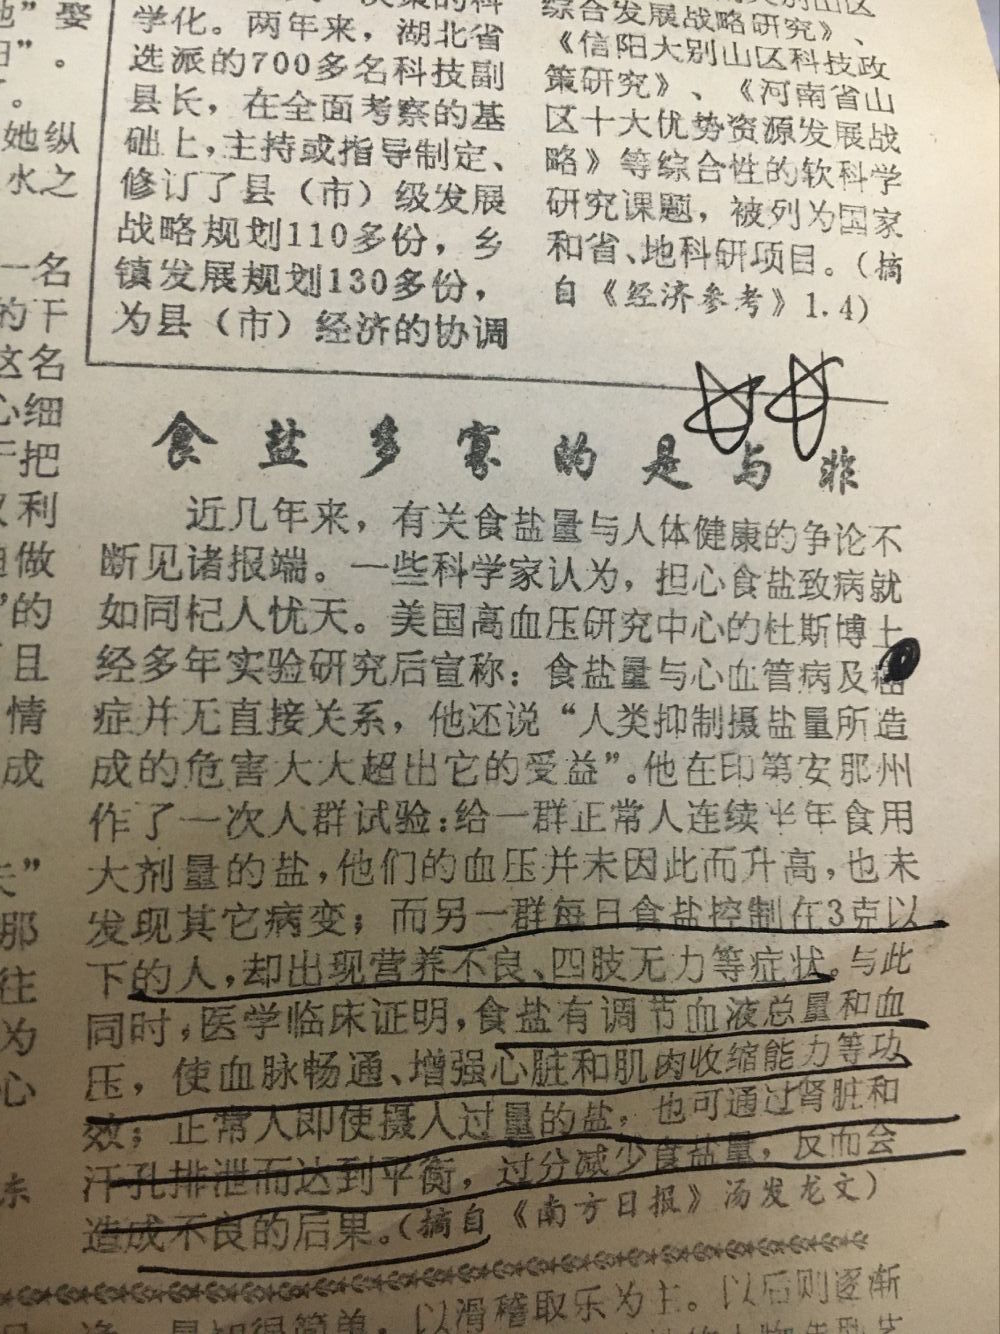 她”娶
日”。
。
她纵
水之
一名
的干
这名
心细
于把
利
做
’的
且
情
成
夫”
那
往
为
心
东
学化。两年来，湖北省
选派的700多名科技副
县长，在全面考察的基
础上，主持或指导制定、
修订了县（市）级发展
战略规划110多份，乡
镇发展规划130多份，
为县（市）经济的协调
综合发展战略研究》、
《信阳大别山区科技政
策研究》、《河南省山
区十大优势资源发展战
略》等综合性的软科学
研究课题，被列为国家
和省、地科研项目。（摘
自《经济参考》1.4）
食盐多寡的是与非
近几年来，有关食盐量与人体健康的争论不
断见诸报端。一些科学家认为，担心食盐致病就
如同杞人忧天。美国高血压研究中心的杜斯博士
经多年实验研究后宣称：食盐量与心血管病及癌
症并无直接关系，他还说“人类抑制摄盐量所造
成的危害大大超出它的受益”。他在印第安那州
作了一次人群试验：给一群正常人连续半年食用
大剂量的盐，他们的血压并未因此而升高，也未
发现其它病变；而另一群每日食盐控制在3克以
下的人，却出现营养不良、四肢无力等症状。与此
同时，医学临床证明，食盐有调节血液总量和血
压，使血脉畅通、增强心脏和肌肉收缩能力等功
效；正常人即使摄入过量的盐，也可通过肾脏和
汗孔排泄而达到平衡，过分减少食盐量，反而会
造成不良的后果。（摘自《南方日报》汤发龙文）
以滑稽取乐为主。以后则逐渐